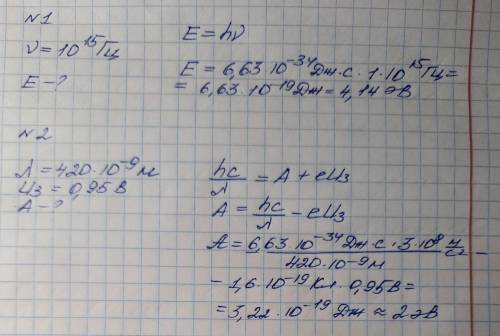 N1
ν = 10¹⁵ Гц
E - ?
E = hν
E = 6,63·10⁻³⁴ Дж·с · 1·10¹⁵ Гц =
= 6,63·10⁻¹⁹ Дж = 4,14 эВ
N2
λ = 420·10⁻⁹ м
Uз = 0,95 В
A - ?
hc/λ = A + eUз
A = hc/λ - eUз
A = 6,63·10⁻³⁴ Дж·с · 3·10⁸ м/с / 420·10⁻⁹ м -
- 1,6·10⁻¹⁹ Кл · 0,95 В =
= 3,22·10⁻¹⁹ Дж ≈ 2 эВ